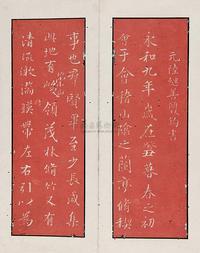 元陸繼善鉤書
永和九年歲在癸丑暮春之初
會于會稽山陰之蘭亭脩禊
事也羣賢畢至少長咸集
此地有崇山峻領茂林脩竹又有
清流激湍暎帶左右引以為